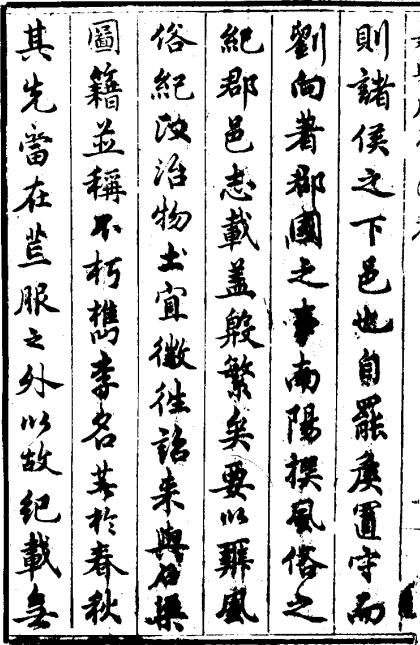 則諸侯之下邑也自罷侯置守而
劉向著郡國之事南陽撰風俗之
紀郡邑志載蓋殷繁矣要以辨風
俗紀政治物土宜徵往詔来與石渠
圖籍並稱不朽檇李名著於春秋
其先當在荒服之外以故紀載無